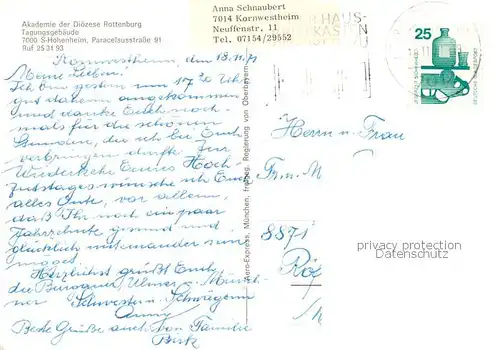 Akademie der Diözese Rottenburg
Tagungsgebäude
7000 S-Hohenheim, Paracelsusstraße 91
Ruf 25 31 93
Anna Schnaubert
7014 Kornwestheim
Neuffenstr. 11
Tel. 07154/29552
HAUS-
KASTEN
25
Kornwestheim, 18.11.71
Meine Lieben!
Ich bin gestern um 17.20 Uhr
gut daheim angekommen
und danke Euch noch-
mals für die schönen
Stunden, die ich bei Euch
verbringen durfte. Zur
Wiederkehr Eueres Hoch-
zeitstages wünsche ich Euch
alles Gute, vor allem,
daß Ihr noch ein paar
Jahrzehnte gesund und
glücklich miteinander sein
möget.
Herzlichst grüßt Euch,
die Ulmer u. Münch-
ner Schwestern, Schwägerin
Anny
Beste Grüße auch von Familie
Birk
Aero-Express, München, freigeg. Regierung von Oberbayern
Herrn u. Frau
Fr. u. M
8871
Rö
privacy protection
Datenschutz